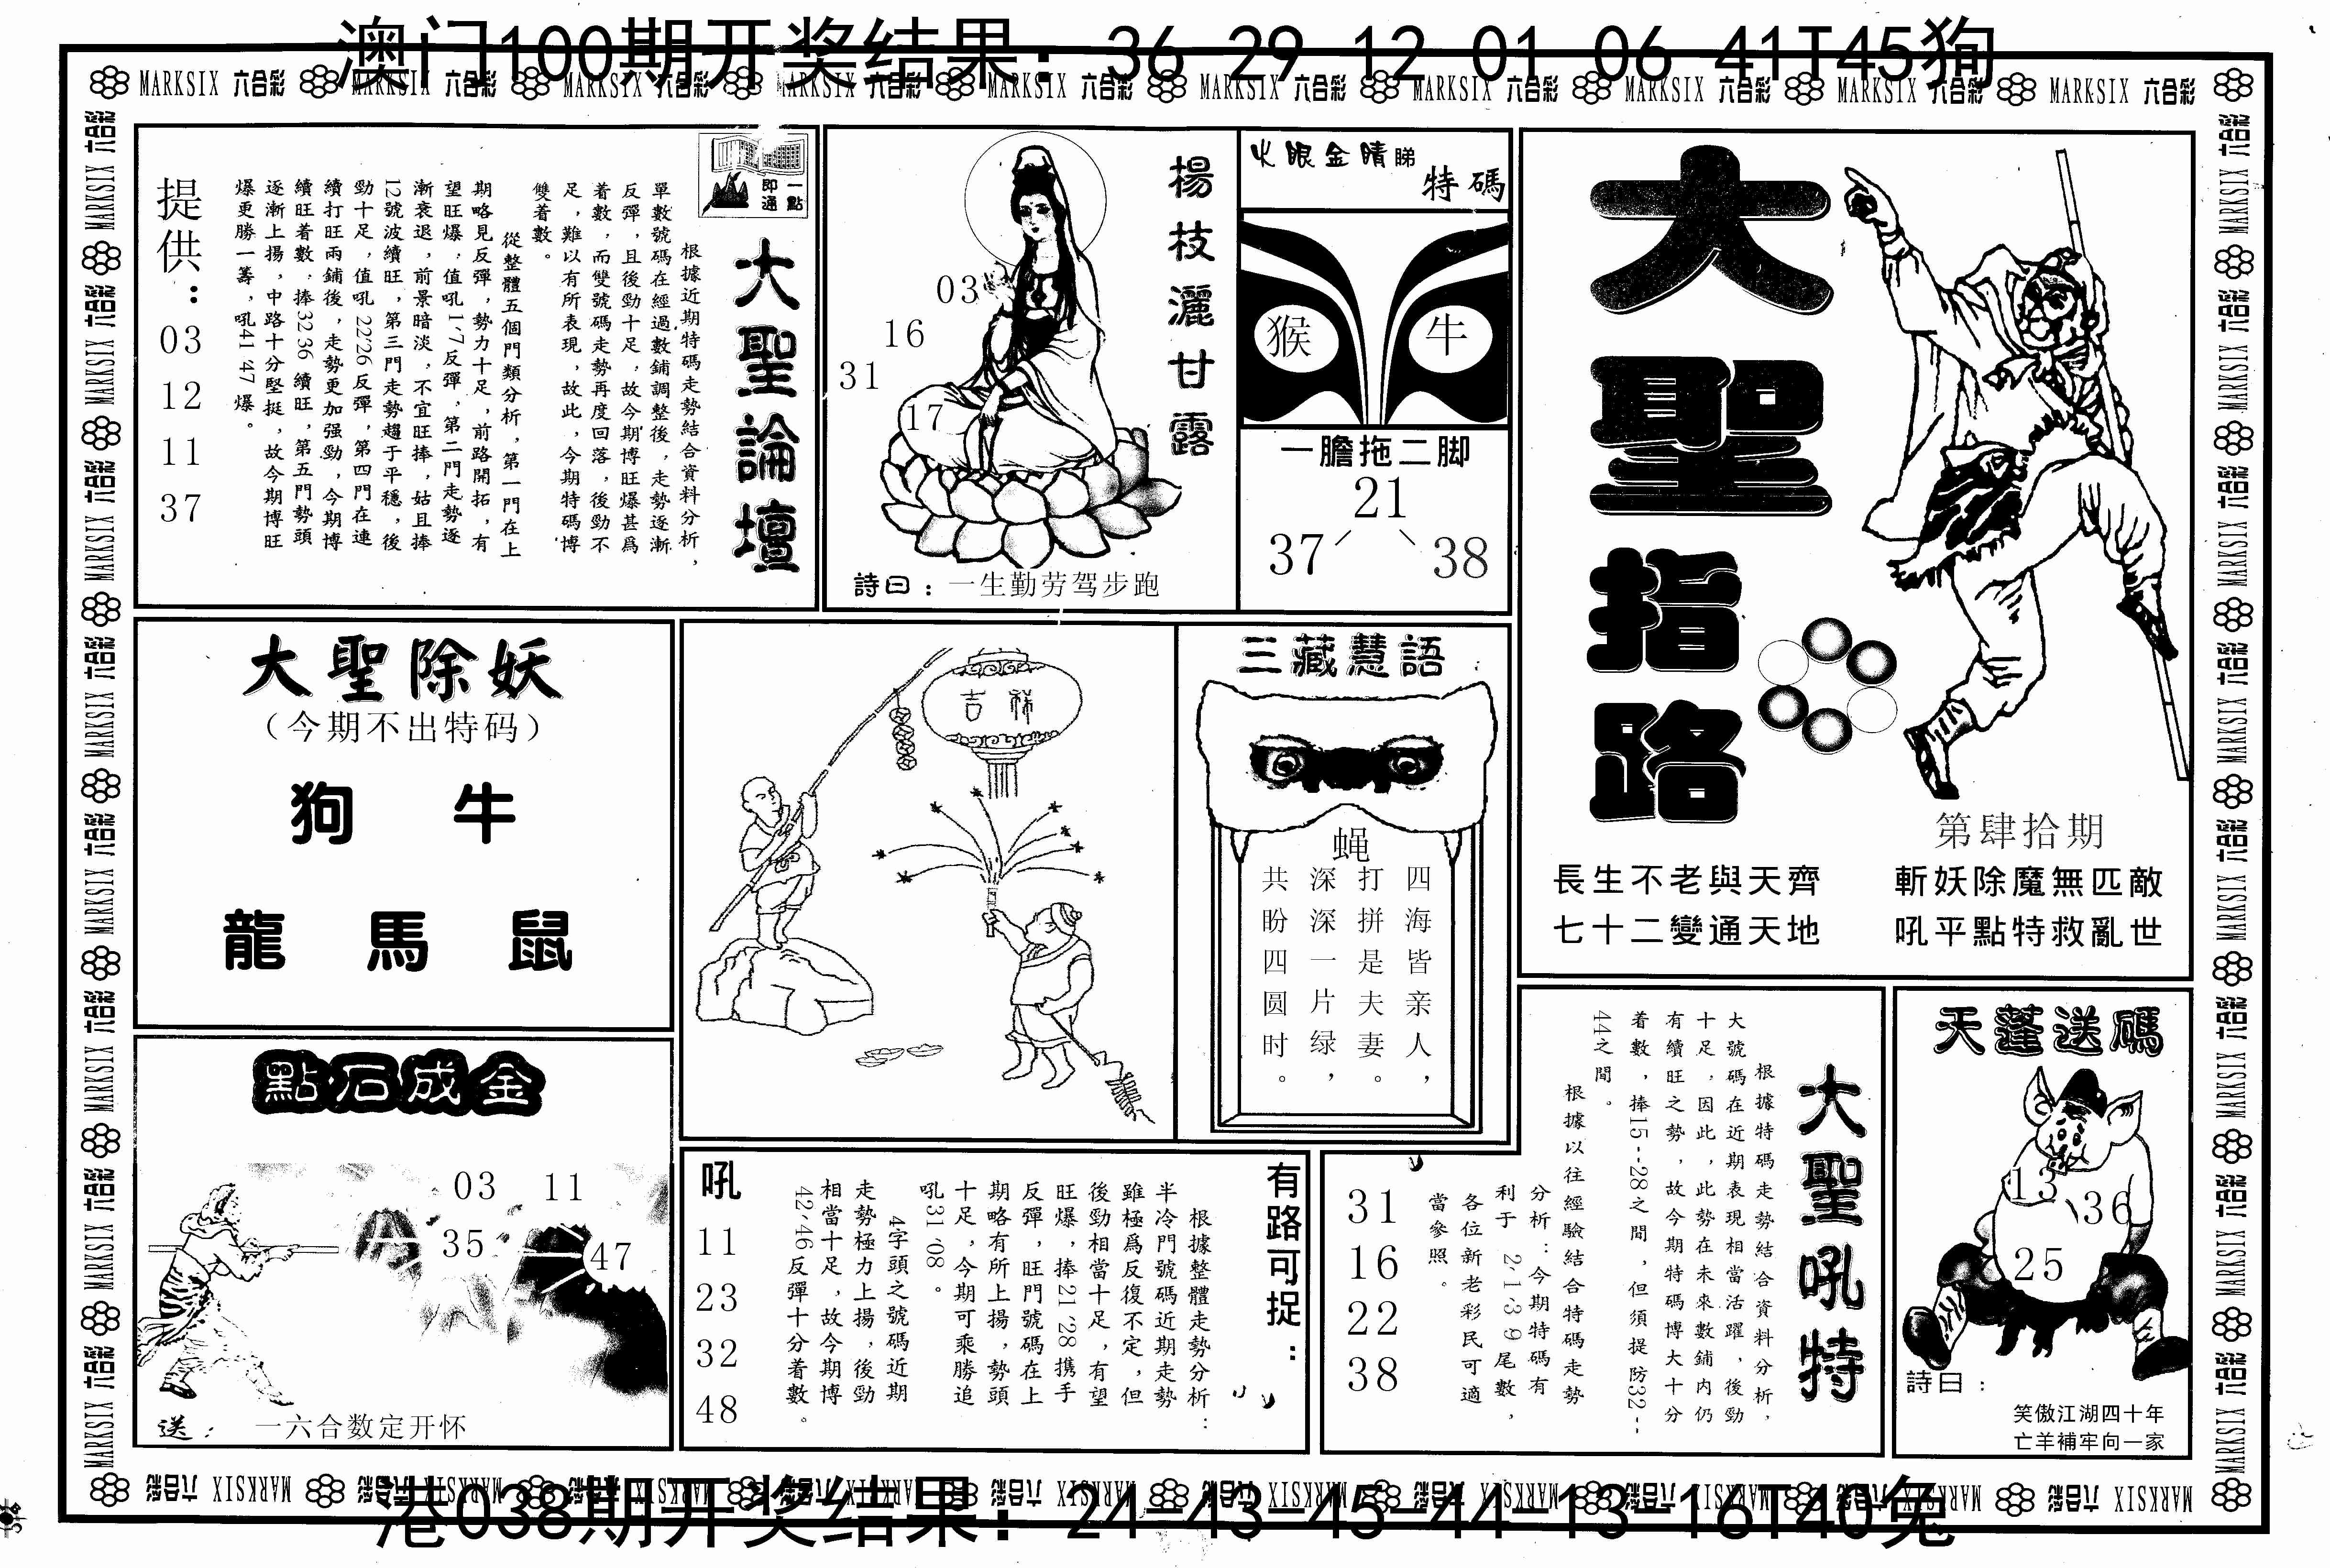 澳门100期开奖结果：36 29 12 01 06 41T45狗
MARKSIX 六合彩 MARKSIX 六合彩 MARKSIX 六合彩 MARKSIX 六合彩 MARKSIX 六合彩 MARKSIX 六合彩 MARKSIX 六合彩 MARKSIX 六合彩 MARKSIX 六合彩 MARKSIX 六合彩
一點
即通
大聖論壇
根據近期特碼走勢結合資料分析，
單數號碼在經過數鋪調整後，走勢逐漸
反彈，且後勁十足，故今期博旺爆甚爲
着數，而雙號碼走勢再度回落，後勁不
足，難以有所表現，故此，今期特碼博
雙着數。
從整體五個門類分析，第一門在上
期略見反彈，勢力十足，前路開拓，有
望旺爆，值吼1、7反彈，第二門走勢逐
漸衰退，前景暗淡，不宜旺捧，姑且捧
12號波續旺，第三門走勢趨于平穩，後
勁十足，值吼22、26反彈，第四門在連
續打旺兩鋪後，走勢更加强勁，今期博
續旺着數，捧32、36續旺，第五門勢頭
逐漸上揚，中路十分堅挺，故今期博旺
爆更勝一籌，吼41、47爆。
提供：
03
12
11
37
楊枝灑甘露
03
16
31
17
詩曰：一生勤劳驾步跑
火眼金睛睇
特碼
猴 牛
一膽拖二脚
21
37 38
大聖指路
第肆拾期
長生不老與天齊 斬妖除魔無匹敵
七十二變通天地 吼平點特救亂世
大聖除妖
（今期不出特码）
狗 牛
龍 馬 鼠
吉祥
三藏慧語
蝇
四海皆亲人，
打拼是夫妻。
深深一片绿，
共盼四圆时。
點石成金
03 11
35 47
送： 一六合数定开怀
有路可捉：
根據整體走勢分析：
半冷門號碼近期走勢
雖極爲反復不定，但
後勁相當十足，有望
旺爆，捧21、28携手
反彈，旺門號碼在上
期略有所上揚，勢頭
十足，今期可乘勝追
吼31、08。
4字頭之號碼近期
走勢極力上揚，後勁
相當十足，故今期博
42、46反彈十分着數。
吼
11
23
32
48
大聖吼特
根據特碼走勢結合資料分析，
大號碼在近期表現相當活躍，後勁
十足，因此，此勢在未來數鋪内仍
有續旺之勢，故今期特碼博大十分
着數，捧15--28之間，但須提防32--
44之間。
根據以往經驗結合特碼走勢
分析：今期特碼有
利于 2-1-3-9尾數，
各位新老彩民可適
當參照。
31
16
22
38
天蓬送碼
13
36
25
詩曰：
笑傲江湖四十年
亡羊補牢向一家
港038期开奖结果：24-43-45-44-13-16T40兔